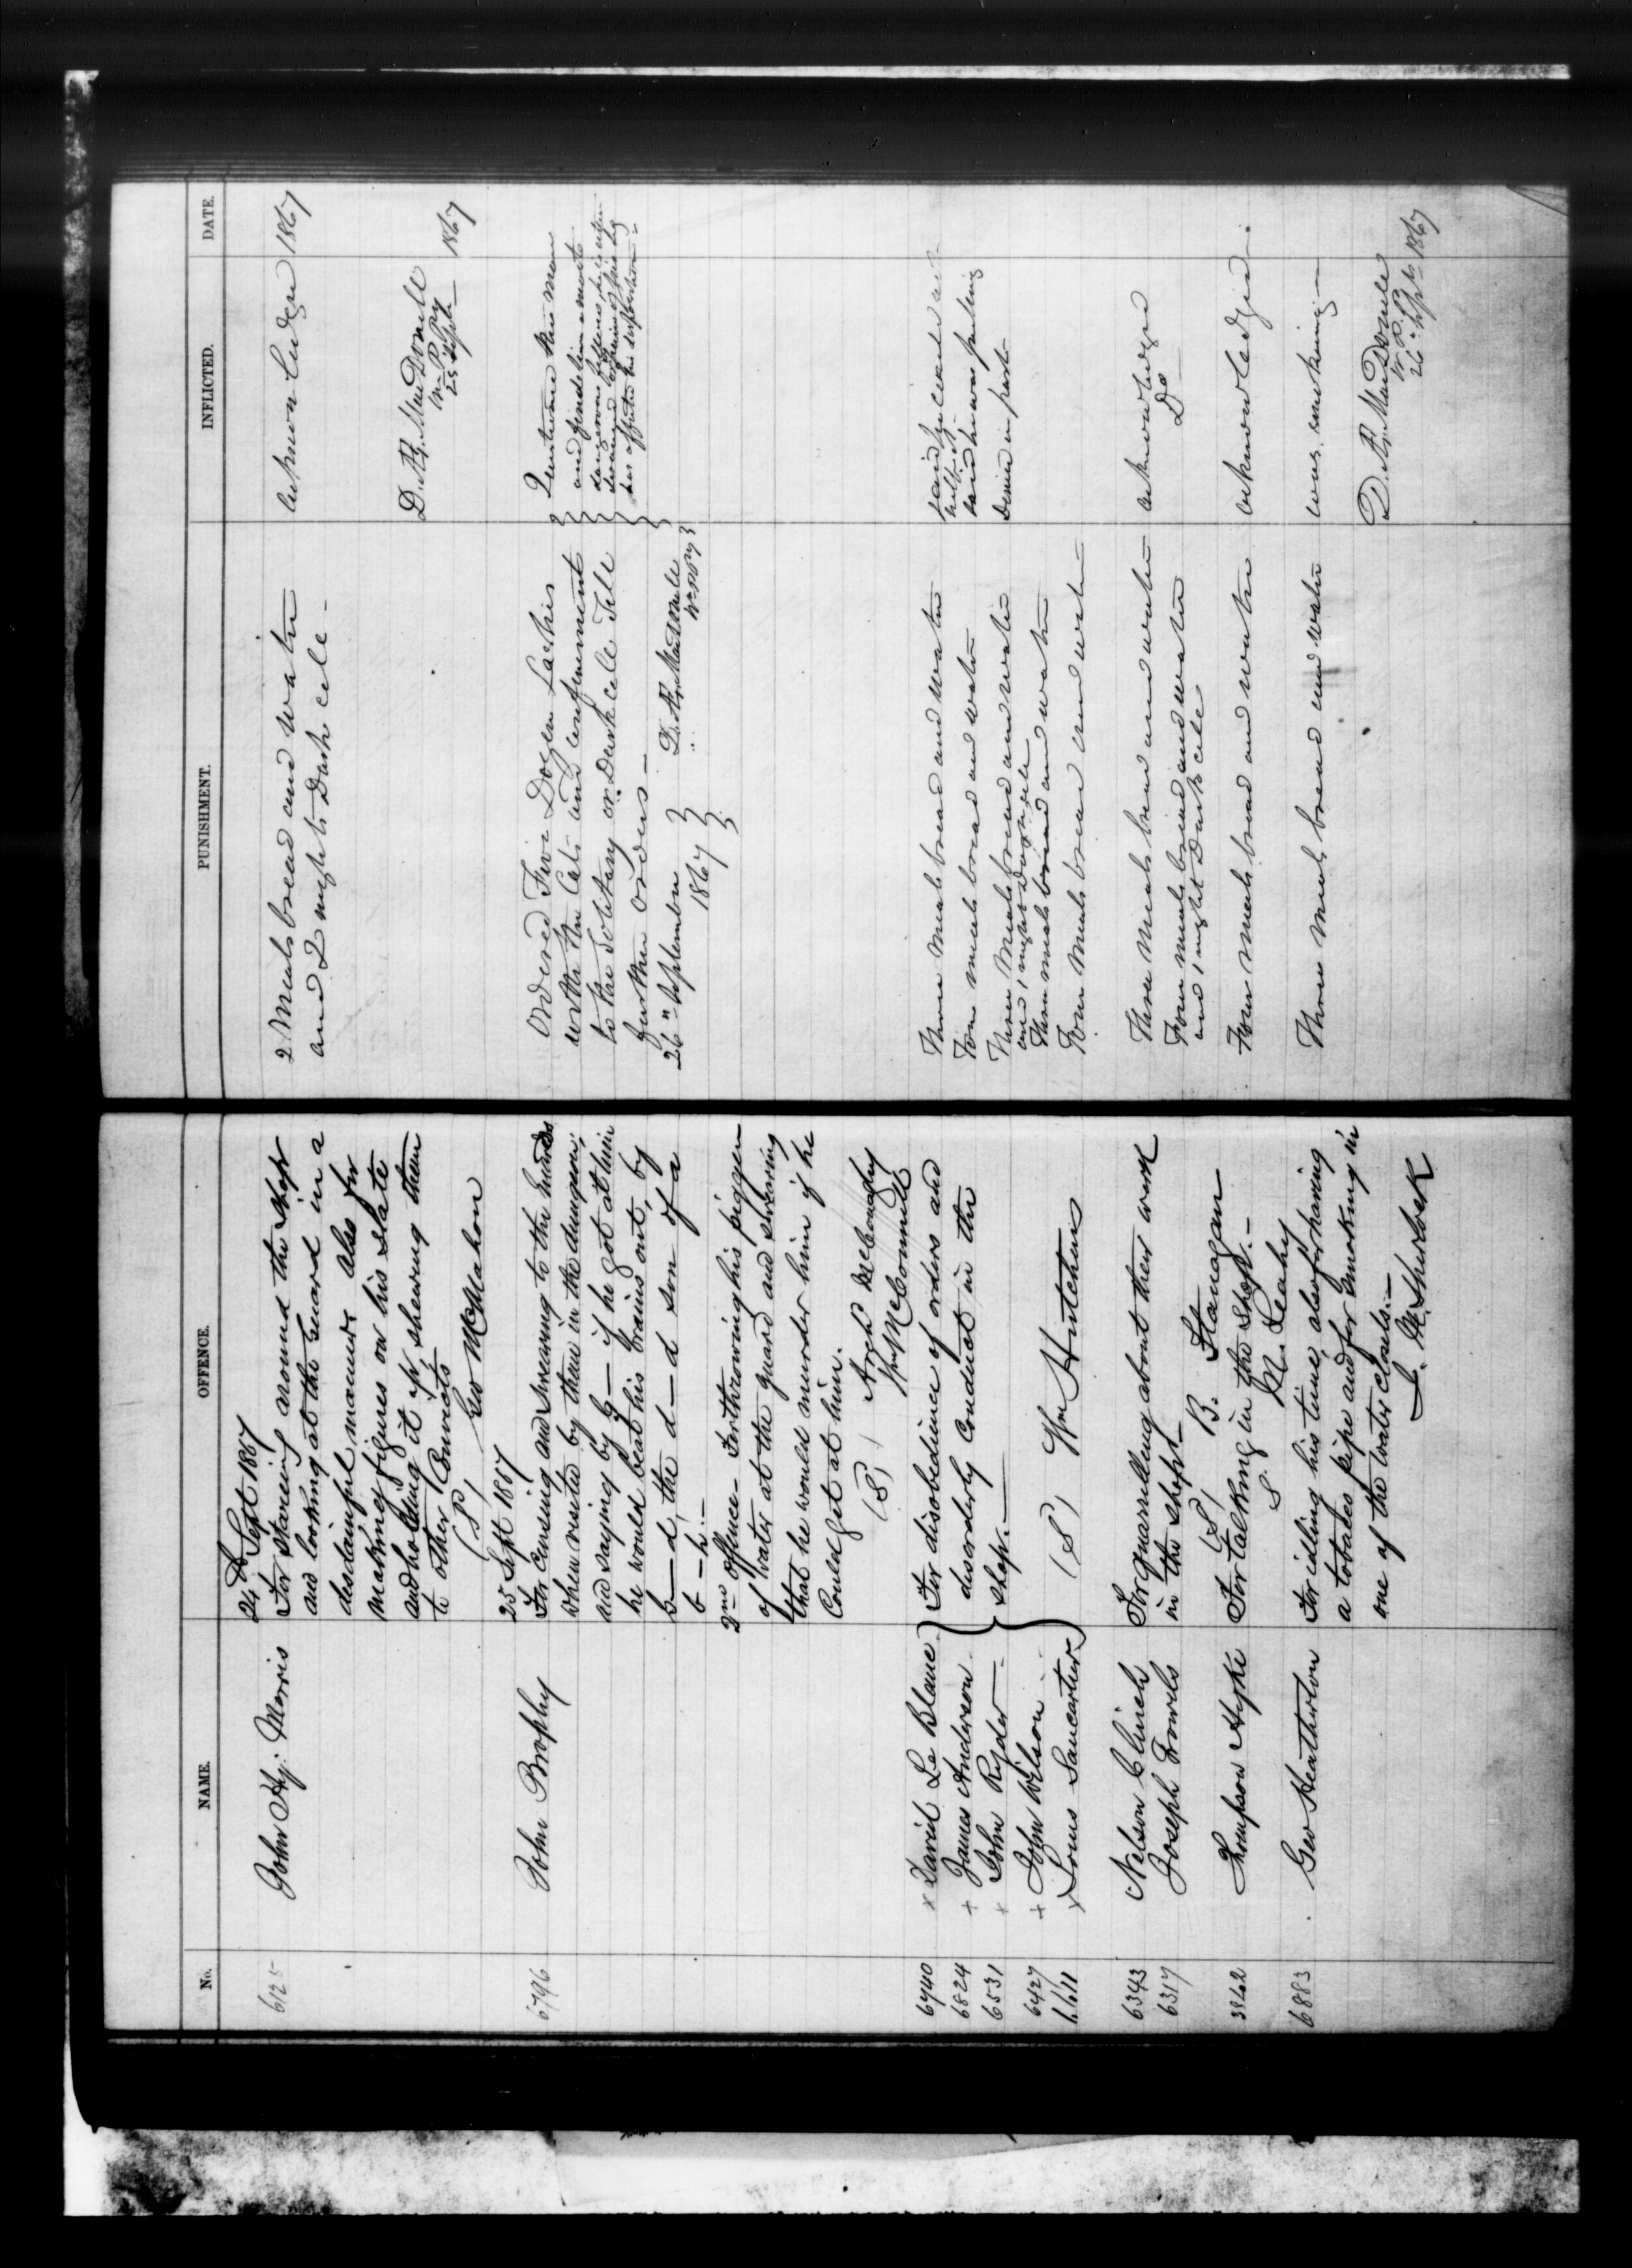 No. NAME. OFFENCE. PUNISHMENT. INFLICTED. DATE.
24th Sept 1867
6125 John Hy. Morris For stareing around the shop
and looking at the Guard in a
disdainful manner also for
making figures on his slate
and holding it up, shewing them
to other Convicts
(S) Geo McMahon
2 Meals bread and water
and 2 nights Dark cell -
1867
D. Æ. MacDonell
W. P. Py
25 Sept - 1867
25 Sept 1867
6796 John Brophy For cursing and swearing to the
when visited by them in the dungeon,
and saying by G— if he got at him
he would beat his brains out, by
G—d, the d—d son of a
b—h.—
2nd Offence - For throwing his piggen
of water at the guard and swearing
that he would murder him if he
Could get at him.
(S) Arch McConaghy
Wm McConnell
Ordered Five Dozen Lashes
with the Cats and confinement
to the Solitary or Dark cell Till
further orders -
26" September 1867
D. Æ. MacDonell
W. P. Py
this man
and
dangerous
his
6740 x David Le Blanc
6824 + James Anderson
6531 x John Ryder
6427 + John Wilson
6611 x Louis Sancartier
For disobedience of orders and
disorderly Conduct in the
shop.—
(S) Wm Hutchens
Three Meals bread and water
Four meals bread and water
Three Meals bread and water
and 1 night Dark cell
Three meals bread and water
Four Meals bread and water
said he was
Denied in part
6343 Nelson Clinch
6317 Joseph Fowels
For quarrelling about their work
in the shop -
(S) B. Flanagan
Three Meals bread and water
Four meals bread and water
and 1 night Dark cell
acknowledged
Do
3962 Thompson For talking in the shop. -
S. M. Leahy
Four Meals bread and water
acknowledged.
6883 Geo Heatherton For idling his time, also for having
a tobacco pipe and for smoking in
one of the water closets.—
J. M. Sherlock
Three Meals bread and water
was smoking -
D. Æ. MacDonell
W. P. Py
26" Sept 1867